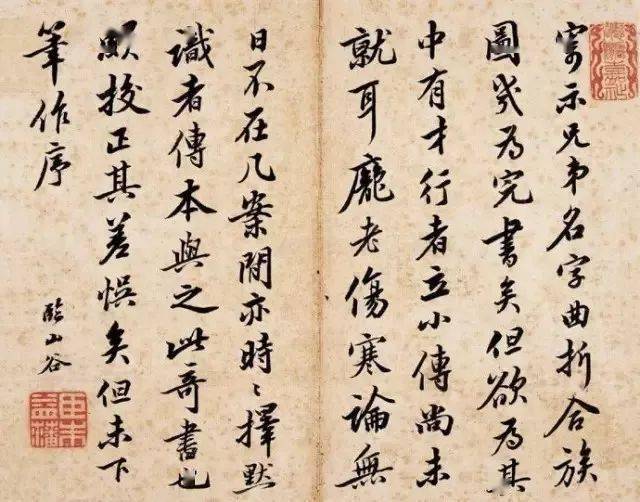 寄示兄弟名字曲折合族
圖幾為完書矣但欲為其
中有才行者立小傳尚未
就耳龐老傷寒論無
日不在几案間亦時〻擇默
識者傳本與之此奇書也
頗校正其差悞矣但未下
筆作序
臨山谷